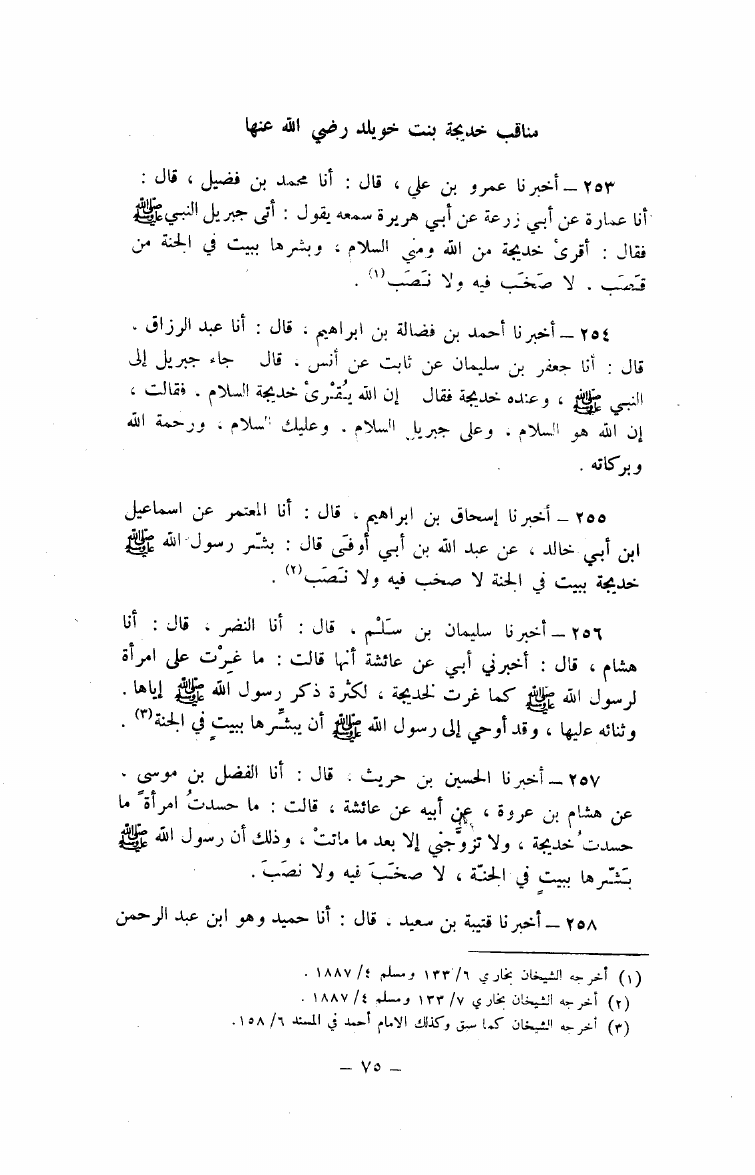 مناقب خديجة بنت خويلد رضي الله عنها
٢٥٣ – أخبرنا عمرو بن علي ، قال : أنا محمد بن فضيل ، قال :
أنا عمارة عن أبي زرعة عن أبي هريرة سمعه يقول : أتى جبريل النبي ﷺ
فقال : أقرئ خديجة من الله ومني السلام ، وبشرها ببيت في الجنة من
قَصَب . لا صَخَب فيه ولا نَصَب(١) .
٢٥٤ – أخبرنا أحمد بن فضالة بن ابراهيم ، قال : أنا عبد الرزاق .
قال : أنا جعفر بن سليمان عن ثابت عن أنس ، قال جاء جبريل إلى
النبي ﷺ ، وعنده خديجة فقال إن الله يُقْرئ خديجة السلام . فقالت ،
إن الله هو السلام . وعلى جبريل السلام . وعليك السلام . ورحمة الله
وبركاته .
٢٥٥ – أخبرنا إسحاق بن ابراهيم . قال : أنا المعتمر عن اسماعيل
ابن أبي خالد ، عن عبد الله بن أبي أوفَى قال : بشّر رسول الله ﷺ
خديجة ببيت في الجنة لا صخب فيه ولا نَصَب(٢) .
٢٥٦ – أخبرنا سليمان بن سَلْم . قال : أنا النضر . قال : أنا
هشام ، قال : أخبرني أبي عن عائشة أنها قالت : ما غِرْت على امرأة
لرسول الله ﷺ كما غرت لخديجة ، لكثرة ذكر رسول الله ﷺ إياها .
وثنائه عليها ، وقد أوحي إلى رسول الله ﷺ أن يبشِّرها ببيتٍ في الجنة(٣) .
٢٥٧ – أخبرنا الحسين بن حريث . قال : أنا الفضل بن موسى .
عن هشام بن عروة ، عن أبيه عن عائشة ، قالت : ما حسدتُ امرأةً ما
حسدتُ خديجة ، ولا تزوَّجني إلا بعد ما ماتتْ ، وذلك أن رسول الله ﷺ
بَشّرها ببيتٍ في الجنّة ، لا صخَبَ فيه ولا نصَبَ .
٢٥٨ – أخبرنا قتيبة بن سعيد . قال : أنا حميد وهو ابن عبد الرحمن
(١) أخرجه الشيخان بخاري ٦/ ١٣٣ ومسلم ٤/ ١٨٨٧ .
(٢) أخرجه الشيخان بخاري ٧/ ١٣٣ ومسلم ٤/ ١٨٨٧ .
(٣) أخرجه الشيخان كما سبق وكذلك الامام أحمد في المسند ٦/ ١٥٨.
– ٧٥ –